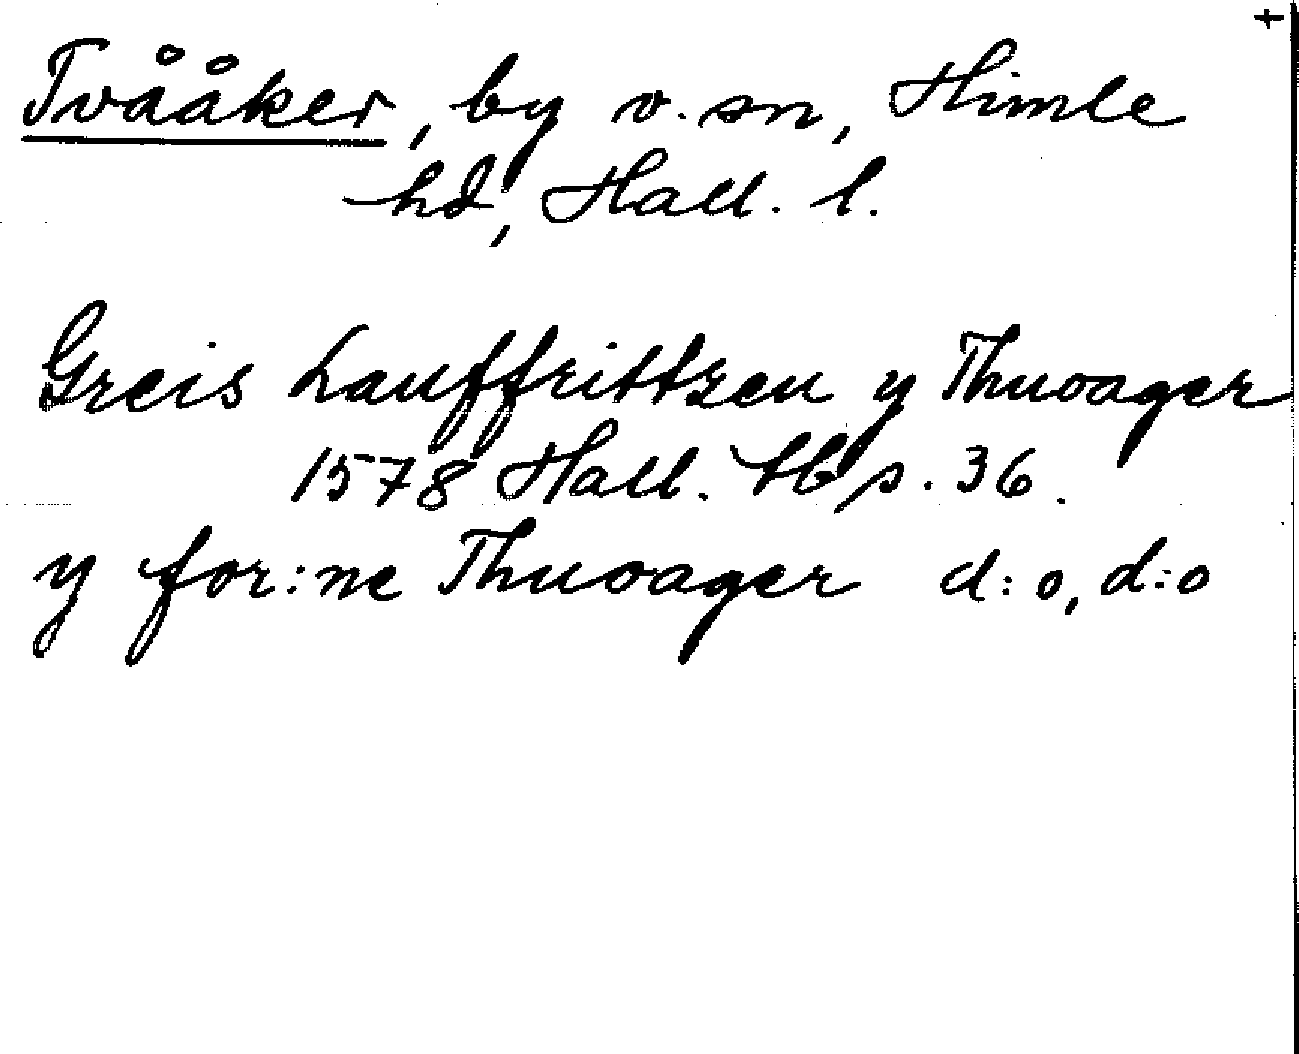 +
Tvååker, by o. sn, Himle
hd, Hall. l.
Greis Lauffrittzen y Thuoager
1578 Hall. tb s. 36.
y for:ne Thuoager d:o, d:o